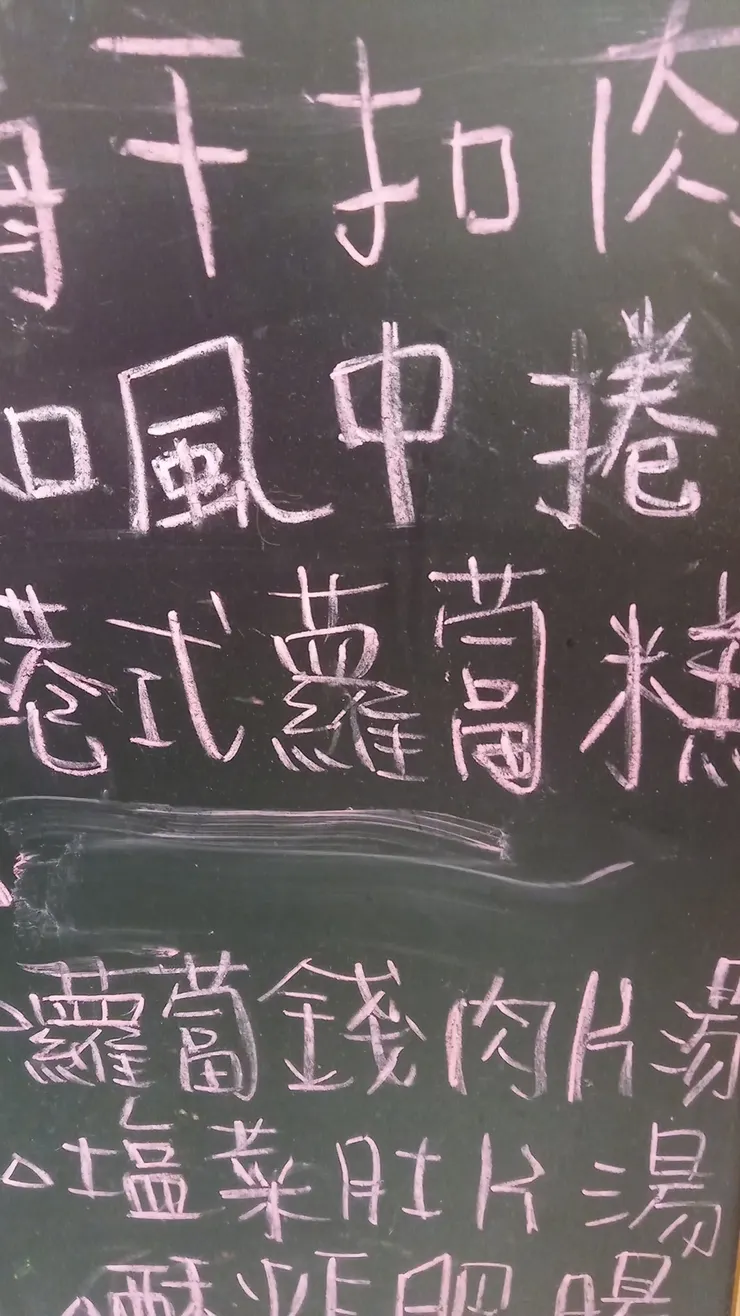 梅干扣肉
和風中捲
港式蘿蔔糕
蘿蔔錢肉片湯
塩菜肚片湯